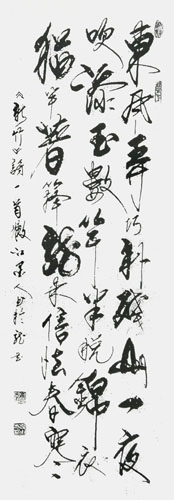 東風弄巧補殘山一夜
吹添玉數竿半脫錦衣
猶半著籜龍未信怯春寒
新竹 一首 江 人書於龍